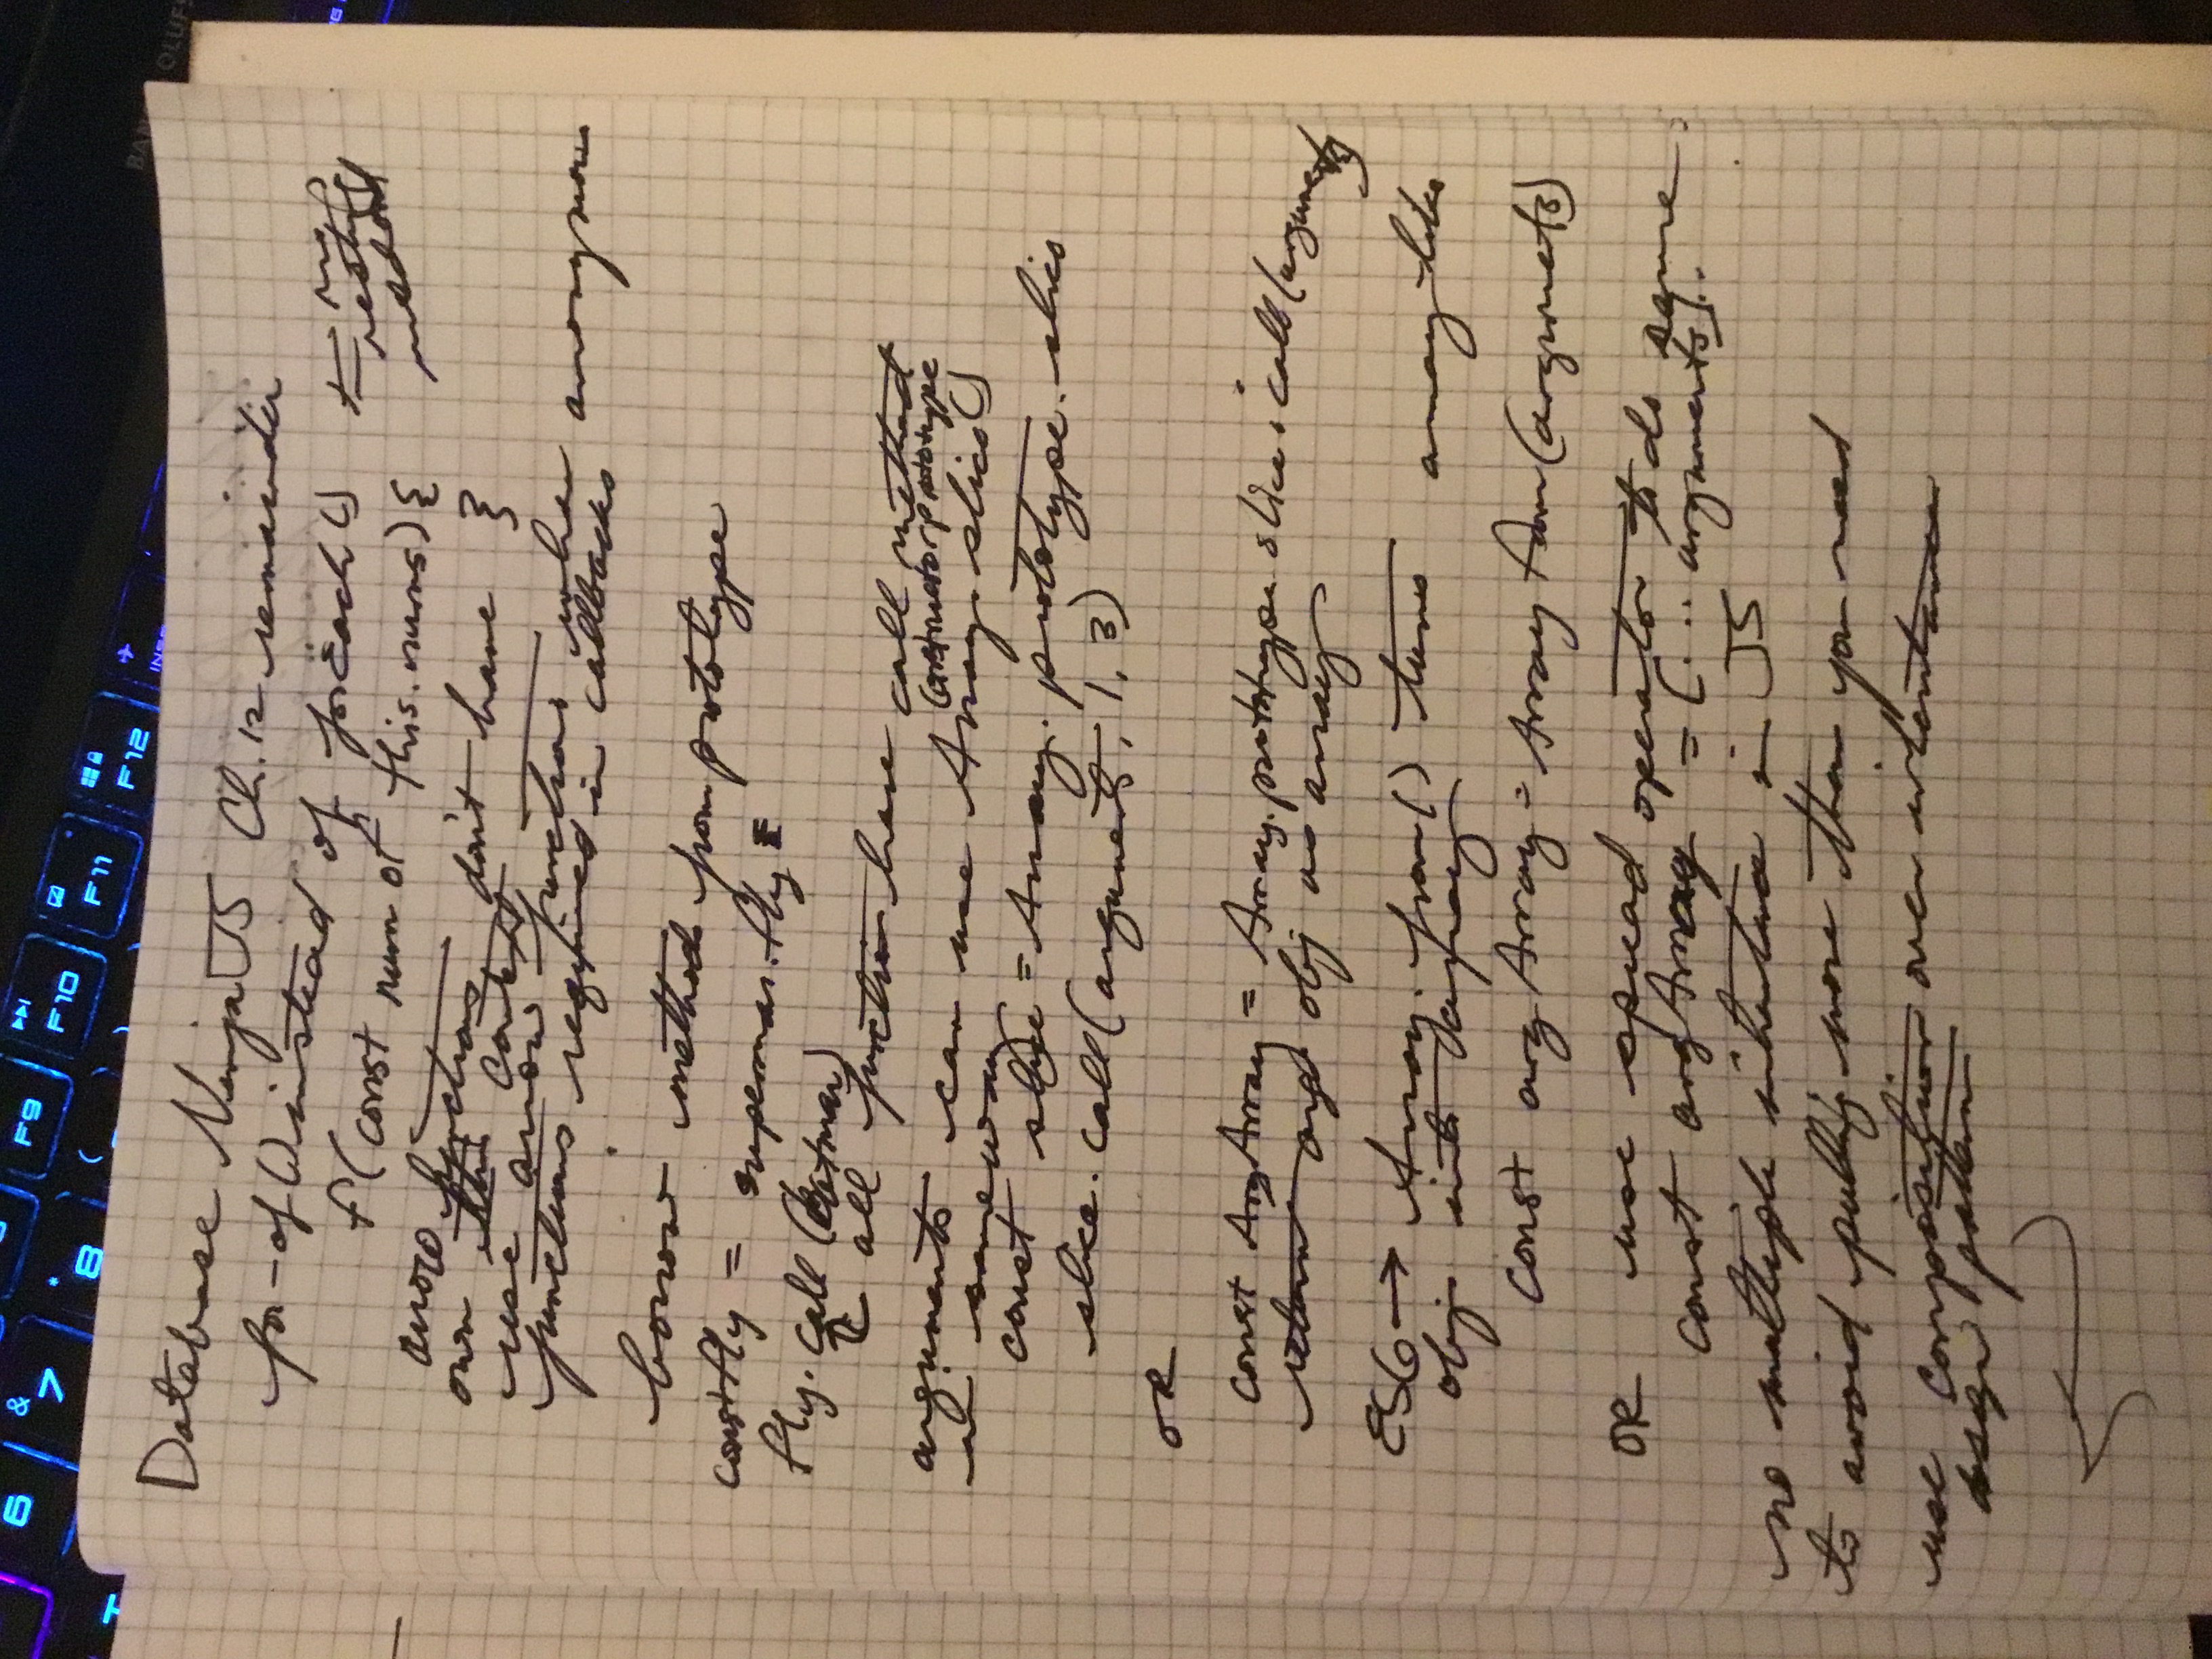 6
&
7
*
8
(
)
F9
F10
F11
F12
INS
BAN
OLUFS
Database Ninja JS Ch. 12 remainder
for-of() instead of forEach() ← no nesting needed
f(const num of this.nums){
}
arrow functions don't have
own this context
use arrow functions when anonymous
functions required in callbacks
borrow methods from prototype
const fly = superman.fly
fly.call(batman)
all function have call method
constructor prototype
arguments can use Array.slice()
in same way
const slice = Array.prototype.slice
slice.call(arguments, 1, 3)
OR
const ArgArray = Array.prototype slice.call(arguments)
return args obj as array
ES6 → Array.from() turns array-like
objs into array
const argArray = Array from(arguments)
OR use spread operator to do same
const argArray = [... arguments]..
no multiple inheritance in JS
to avoid pulling more than you need
use composition over inheritance
design pattern